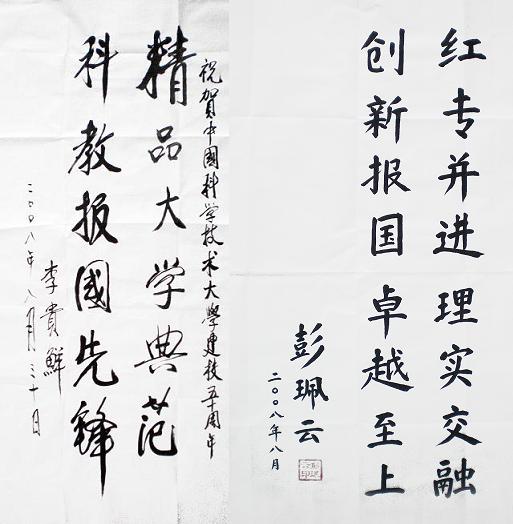 祝賀中國科学技术大學建校五十周年
精品大学典范
科教报國先鋒
李貴鮮
二〇〇八年八月三十日
红专并进理实交融
创新报国卓越至上
彭珮云
二〇〇八年八月